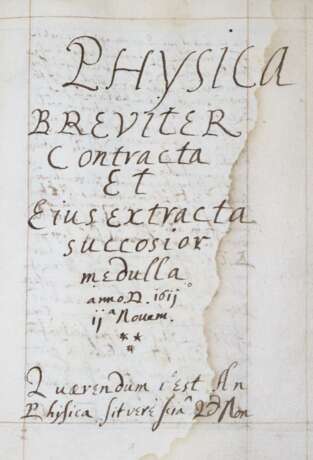 PHYSICA
BREVITER
Contracta
Et
Eius extracta
succosior
medulla
anno D. 1611
11ª Novem.
***
Quærendum i est An
Physica sit vere scia Non